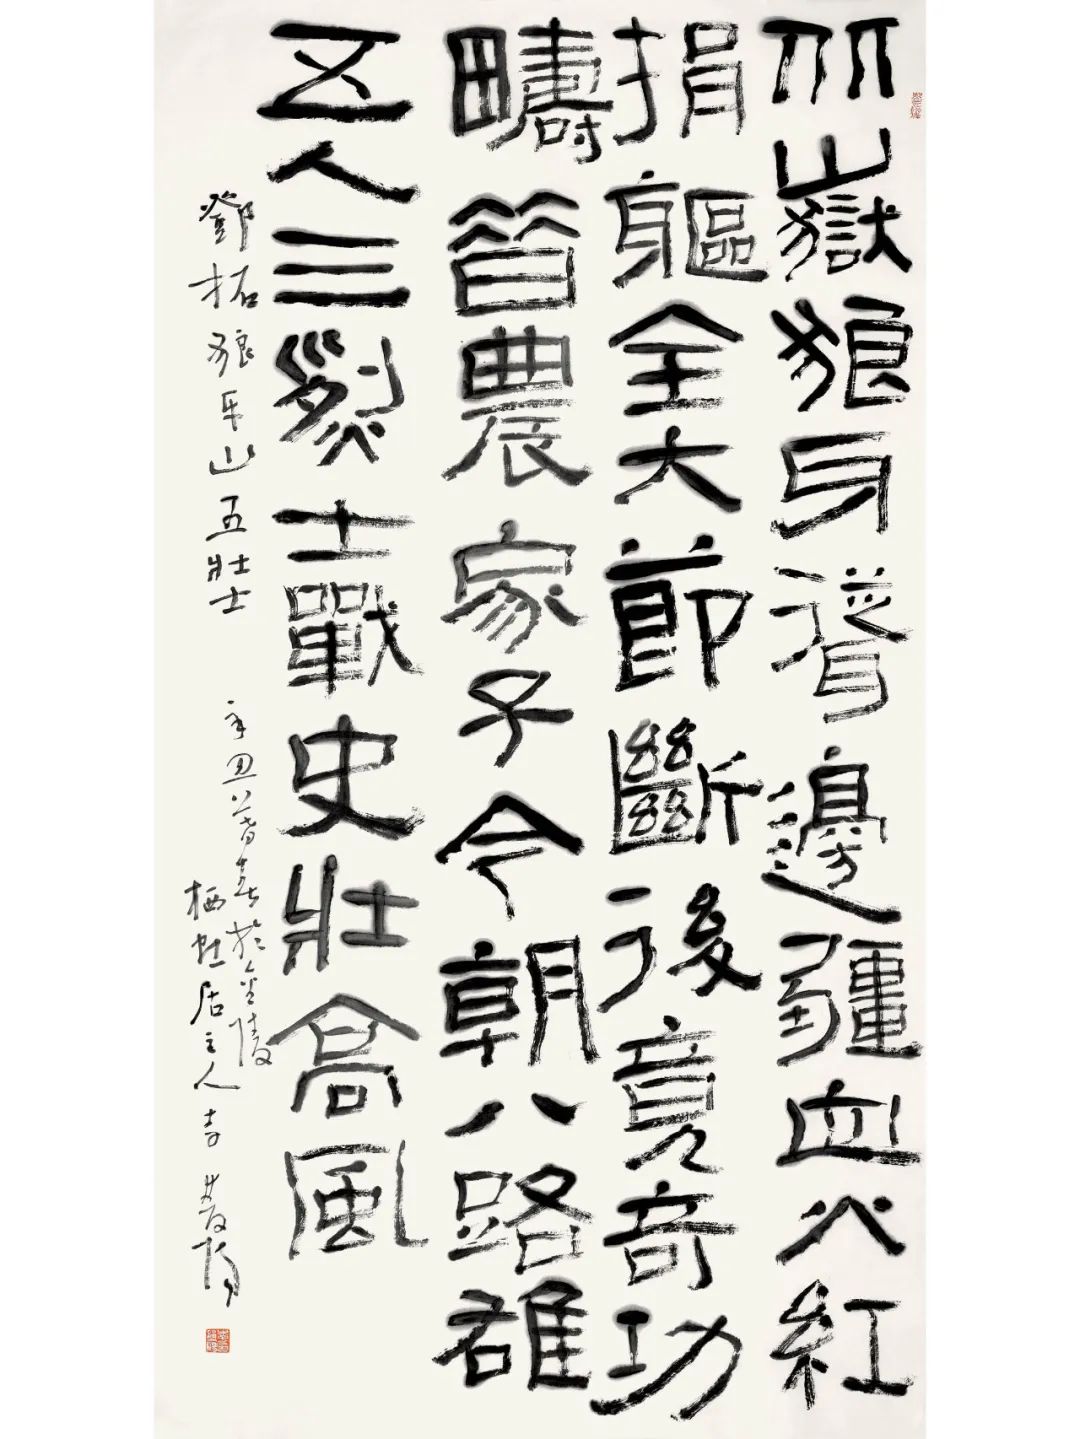 北嶽狼牙聳邊疆血火紅
捐軀全大節斷後竟奇功
疇昔農家子今朝八路雄
五人三烈士戰史壯高風
鄧拓狼牙山五壯士 辛丑暮春於金陵
栖虹居主人